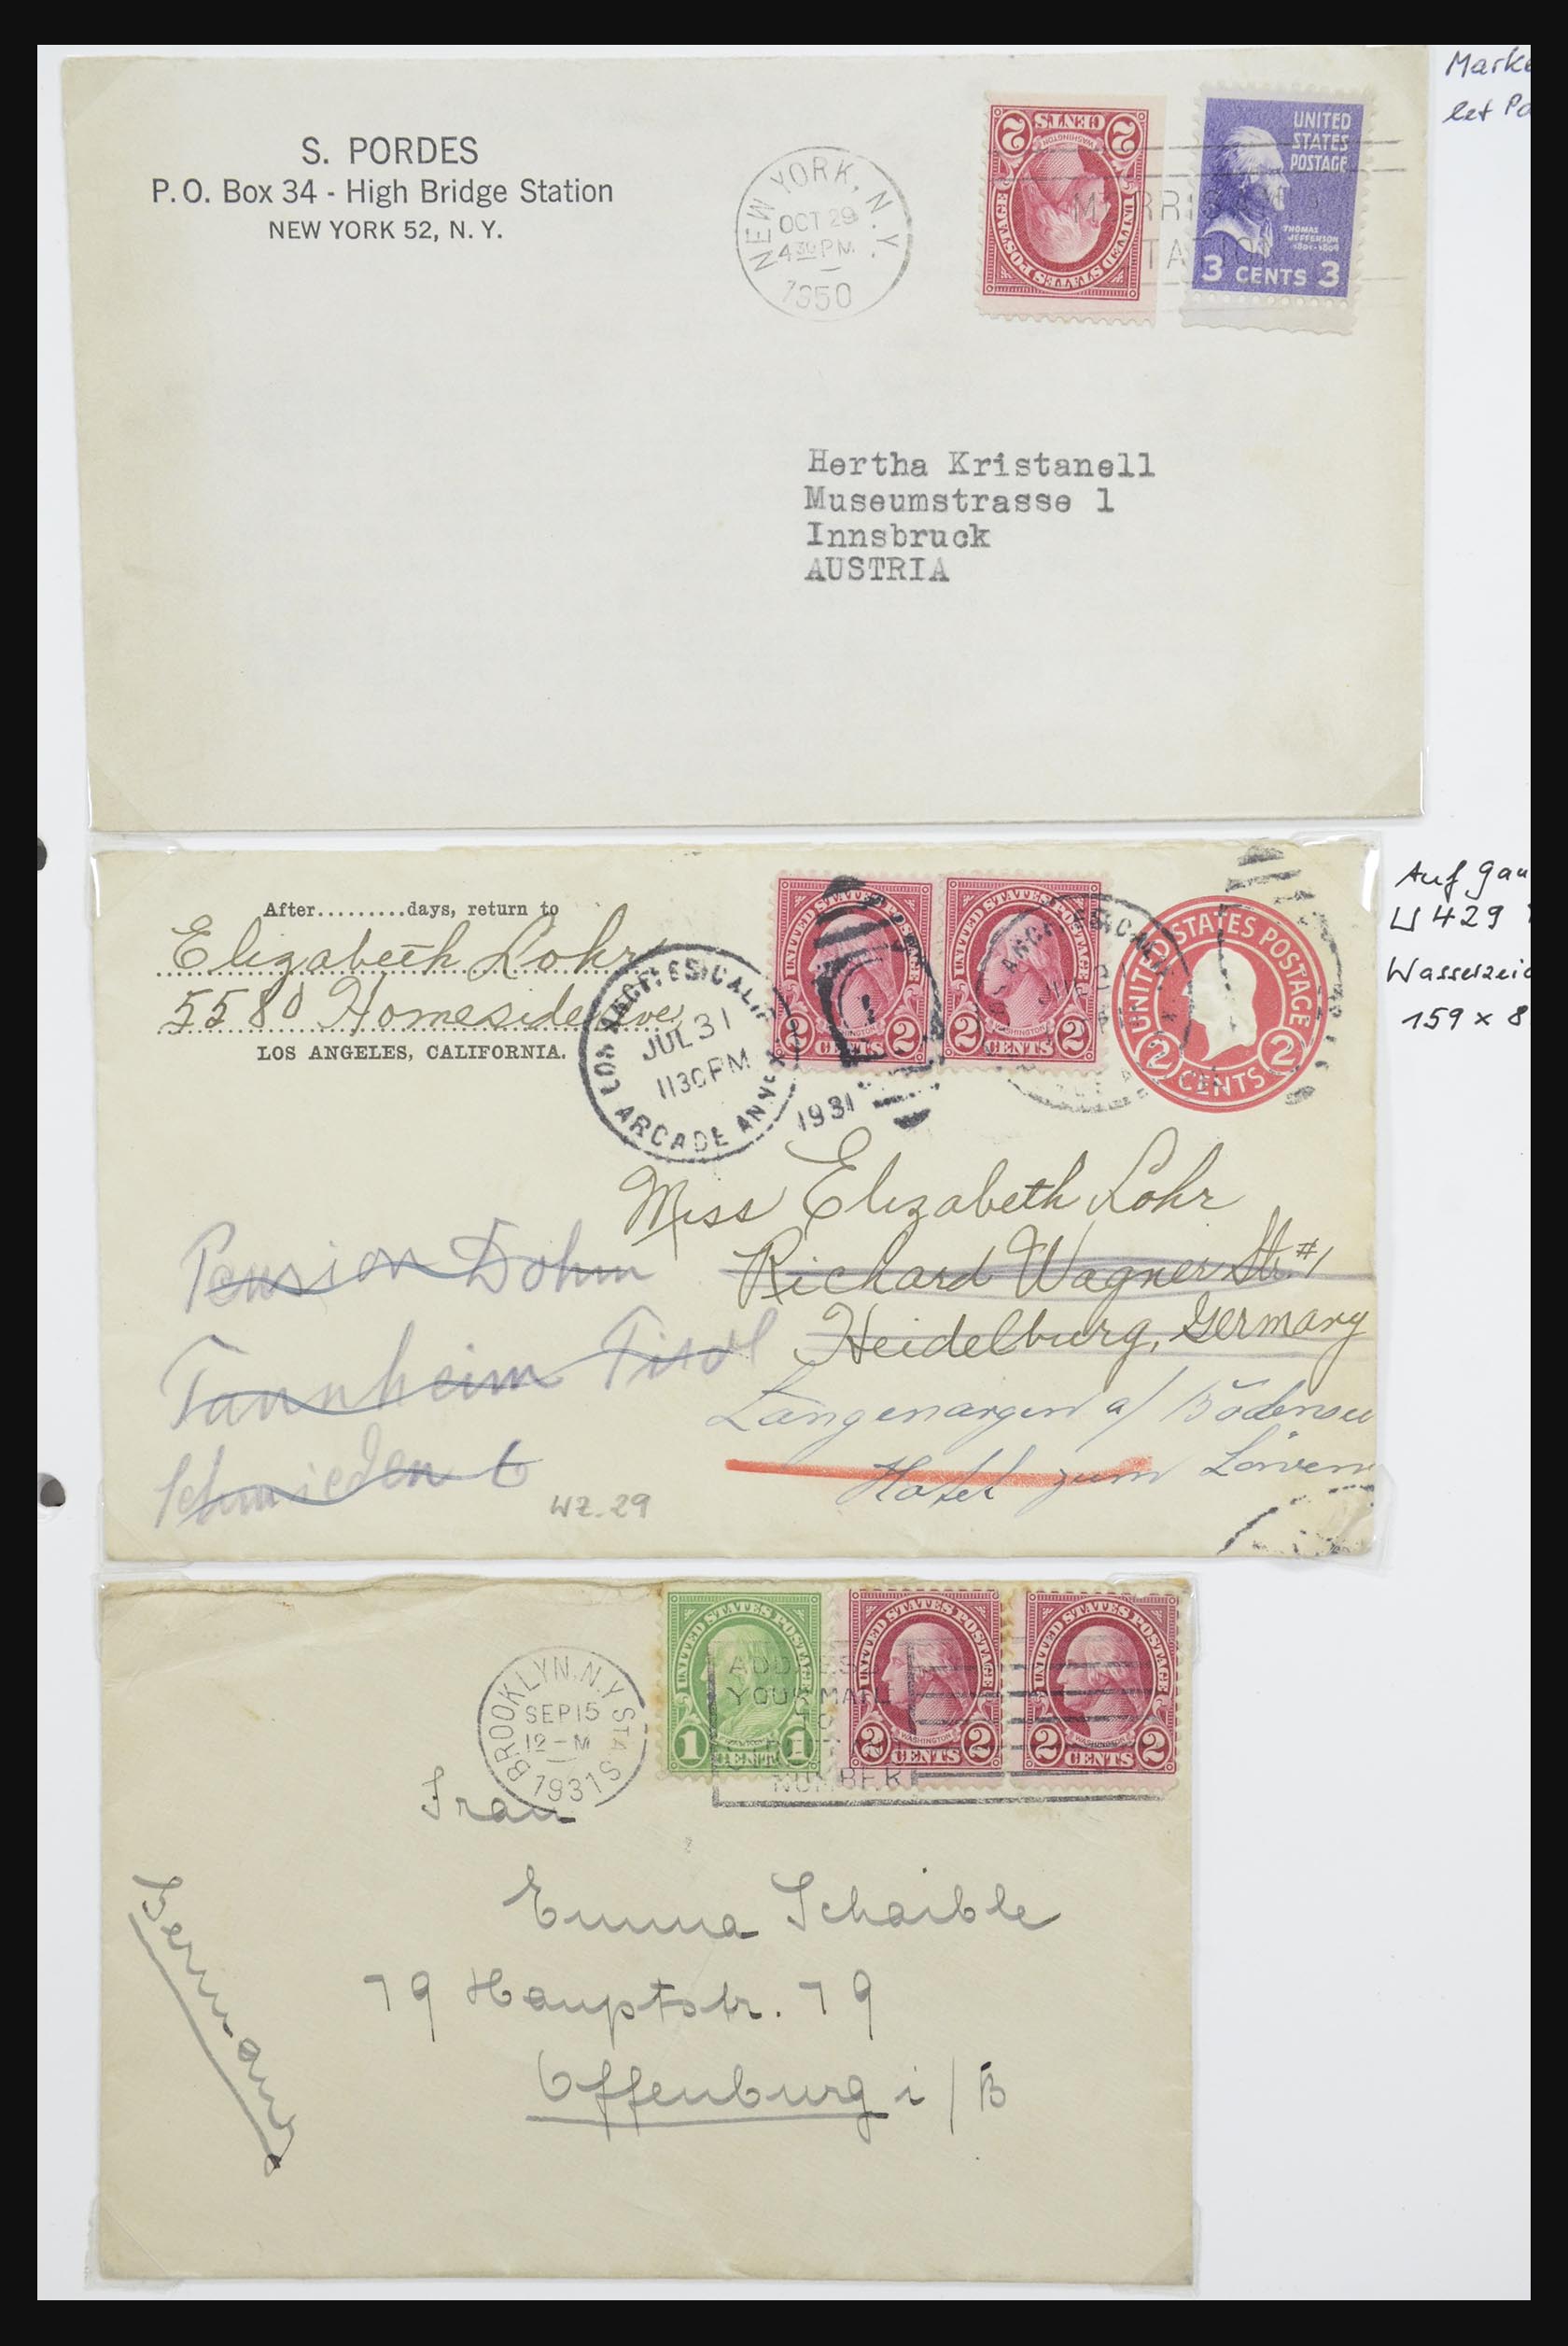 S. PORDES
P.O. Box 34 - High Bridge Station
NEW YORK 52, N. Y.
NEW YORK, N.Y.
OCT 29
4 30 PM
1950
2 CENTS 2
WASHINGTON
UNITED STATES POSTAGE
UNITED
STATES
POSTAGE
THOMAS
JEFFERSON
3 CENTS 3
Hertha Kristanell
Museumstrasse 1
Innsbruck
AUSTRIA
After.........days, return to
Elizabeth Lohr
5580 Homeside Ave.
LOS ANGELES, CALIFORNIA.
LOS ANGELES, CALIF.
JUL 31
1130 PM
ARCADE ANNEX
1931
UNITED STATES POSTAGE
WASHINGTON
2 CENTS 2
UNITED STATES POSTAGE
WASHINGTON
2 CENTS 2
UNITED STATES POSTAGE
2 CENTS 2
Miss Elizabeth Lohr
Richard Wagner Str. #1
Heidelburg, Germany
Langenargen a/ Bodensee
Hotel zum Löwen
Pension Dohm
Tannheim Tirol
Schmieden 6
WZ. 29
Auf
U 429
159 x 8
BROOKLYN, N.Y.
STA. S
SEP 15
12 - M
1931
UNITED STATES POSTAGE
1 CENT 1
UNITED STATES POSTAGE
WASHINGTON
2 CENTS 2
UNITED STATES POSTAGE
WASHINGTON
2 CENTS 2
ADDRESS
YOUR MAIL
TO
STREET AND
NUMBER
Frau
Emma Schaible
79 Hauptstr. 79
Offenburg i/B
Germany